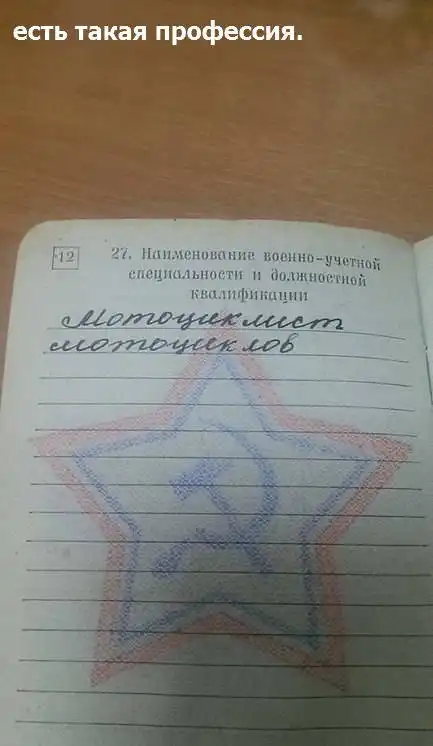 есть такая профессия.
12
27. Наименование военно-учетной
специальности и должностной
квалификации
Мотоциклист
мотоциклов